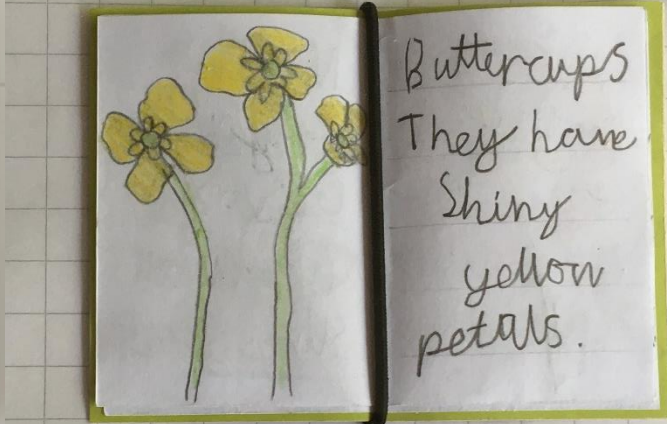 Buttercups
They have
Shiny
yellow
petals.